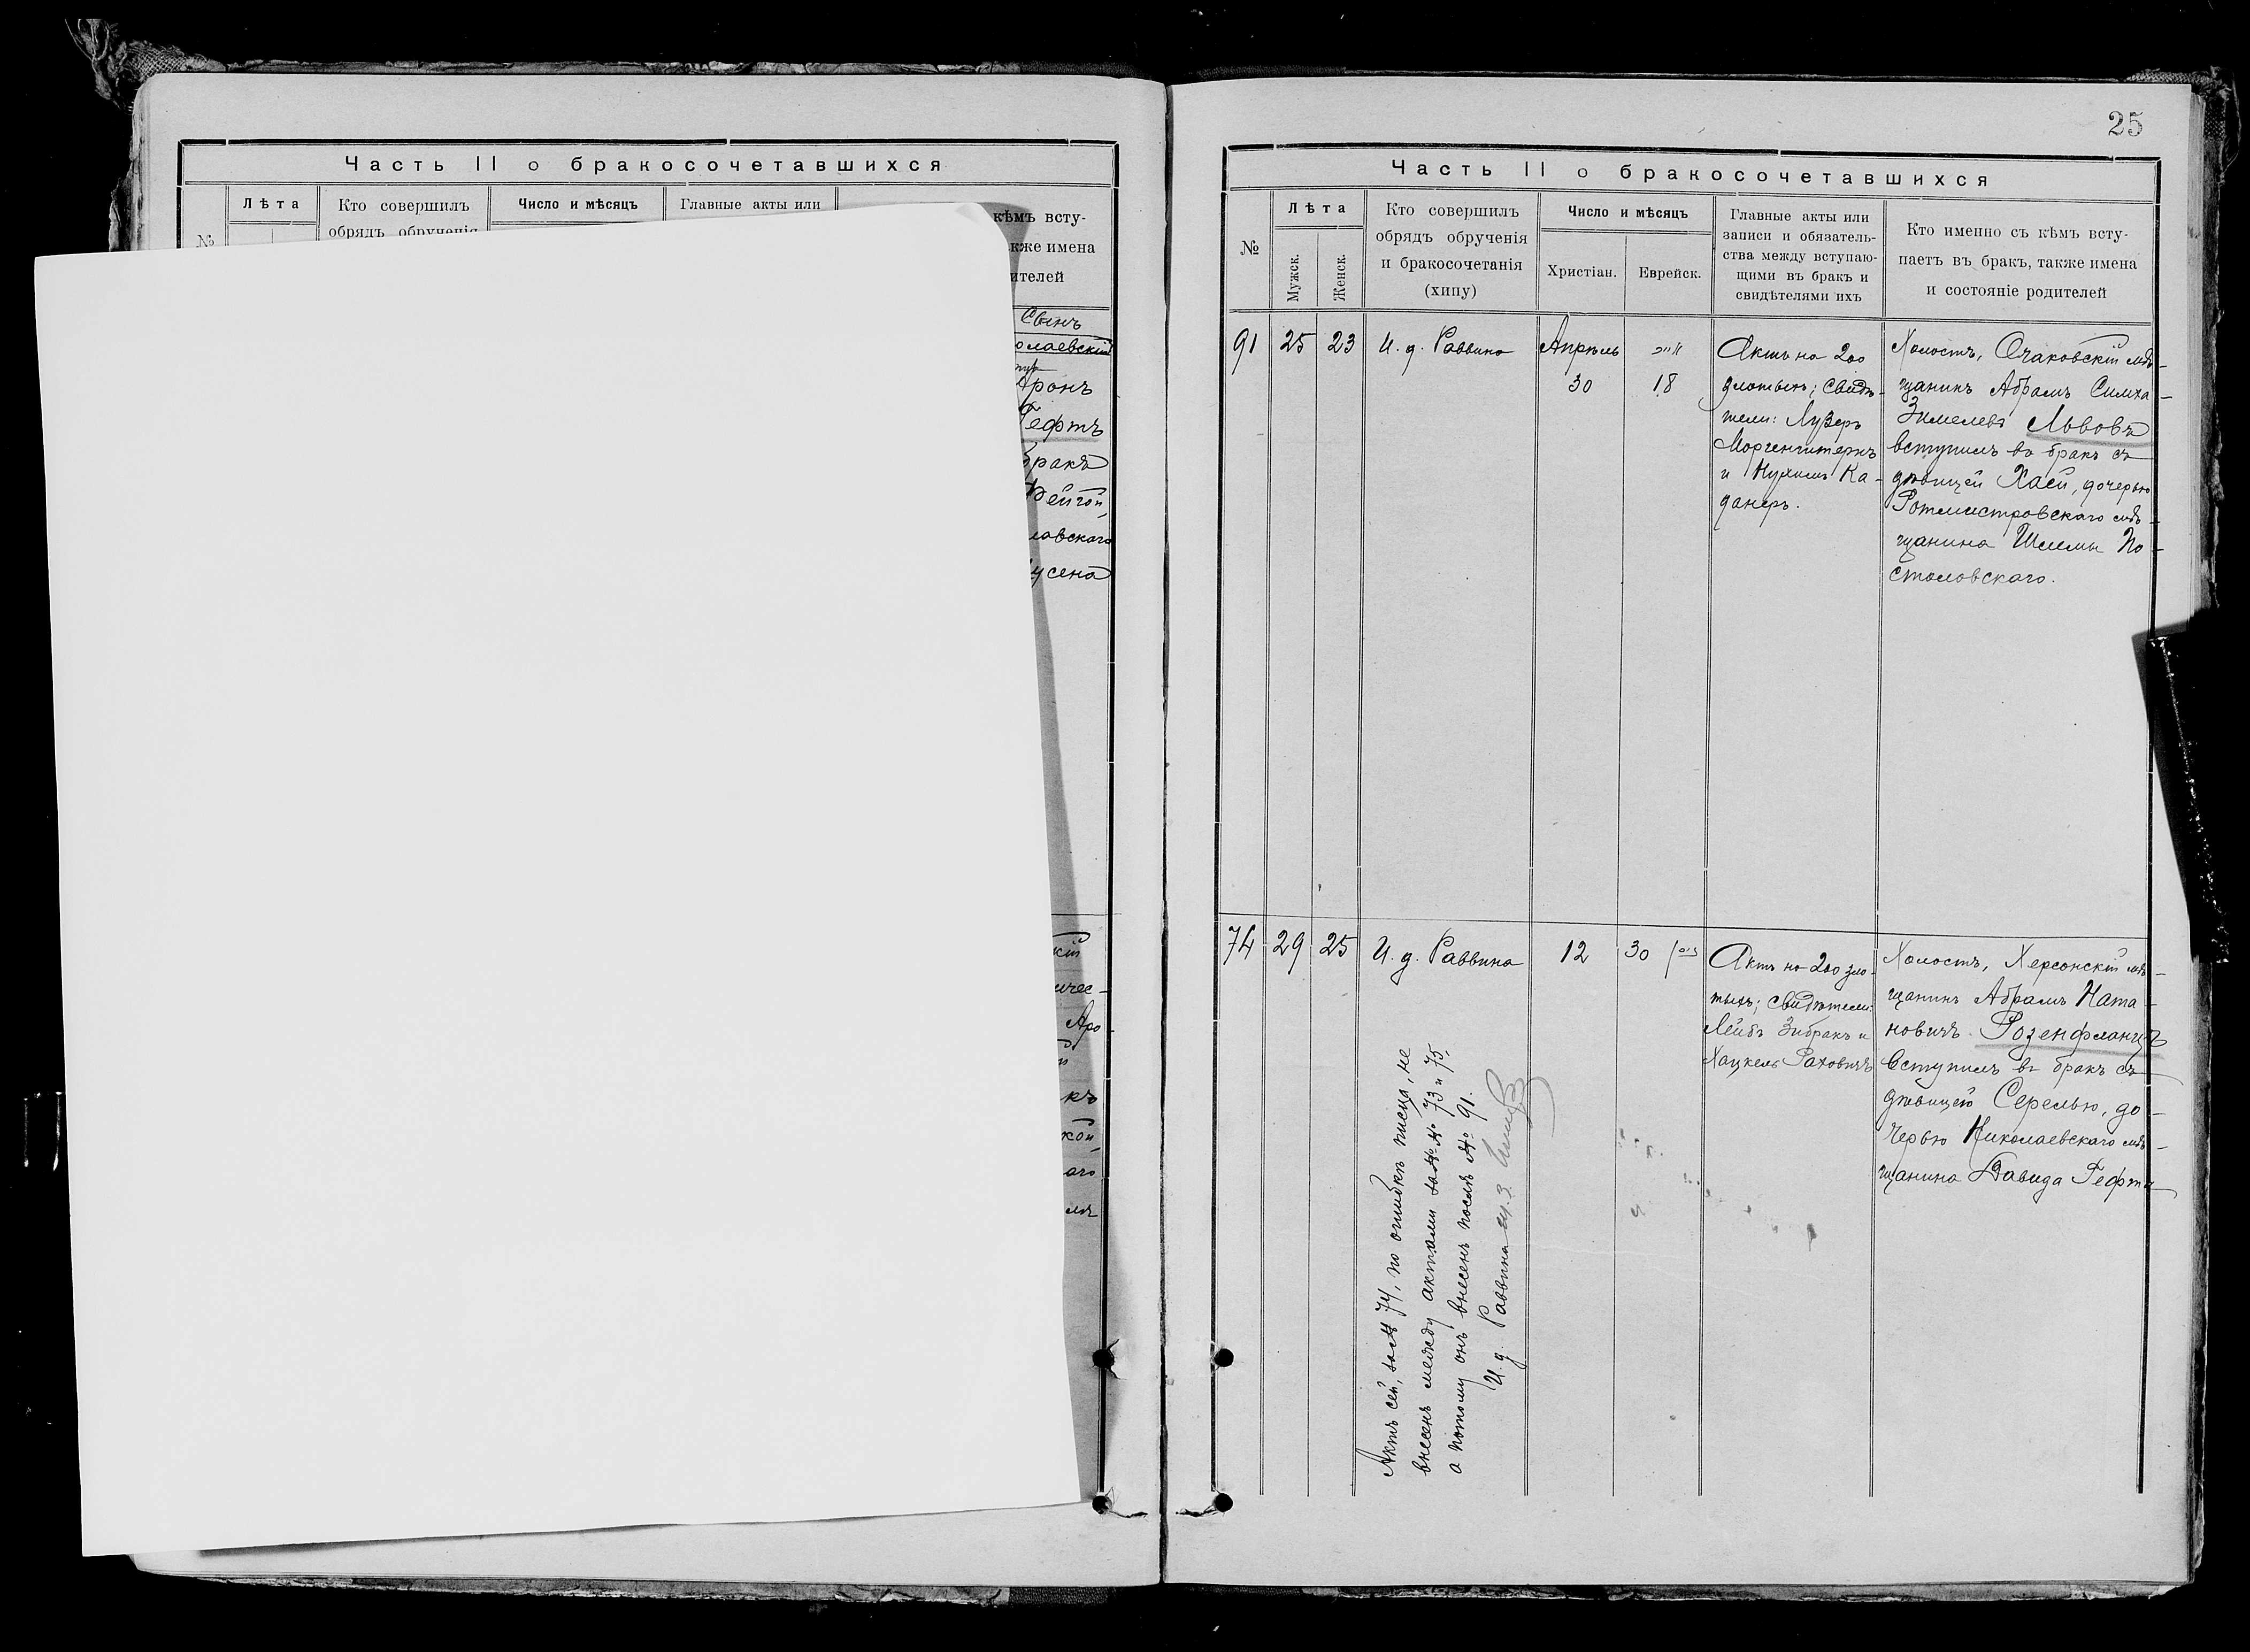 Часть II о бракосочетавшихся
№
Лѣта
Кто совершилъ
обрядъ обрученія
Число и мѣсяцъ
Главные акты или
кѣмъ всту-
кже имена
ителей
Сынъ
олаевскій
Аронъ
Гефтъ
бракъ
Фейгой,
лавскаго
усена
кій
ичес-
Аро-
къ
кой,
аго
25
Часть II о бракосочетавшихся
№
Лѣта
Мужск.
Женск.
Кто совершилъ
обрядъ обрученія
и бракосочетанія
(хипу)
Число и мѣсяцъ
Христіан.
Еврейск.
Главные акты или
записи и обязатель-
ства между вступаю-
щими въ бракъ и
свидѣтелями ихъ
Кто именно съ кѣмъ всту-
паетъ въ бракъ, также имена
и состояніе родителей
91
25
23
И. д. Раввина
Апрѣль
30
18
Актъ на 200
злотыхъ; свидѣ-
тели: Лузеръ
Моргенштернъ
и Нухимъ Ка-
данеръ.
Холостъ, Очаковскій мѣ-
щанинъ Абрамъ Симха
Зимелевъ Львовъ
вступилъ въ бракъ съ
дѣвицей Хаей, дочерью
Ротмистровскаго мѣ-
щанина Шлемы По-
столовскаго.
74
29
25
И. д. Раввина
12
30
Актъ на 200 зло-
тыхъ; свидѣтели:
Лейбъ Зибракъ и
Хацкель Раховичъ
Холостъ, Херсонскій мѣ-
щанинъ Абрамъ Ната-
новичъ Розенфланцъ
вступилъ въ бракъ съ
дѣвицею Серелью, до-
черью Николаевскаго мѣ-
щанина Давида Гефта
Актъ сей, за № 74, по ошибкѣ писца, не
внесенъ между актами за №№ 73 и 75,
а потому онъ внесенъ послѣ № 91.
И. д. Раввина